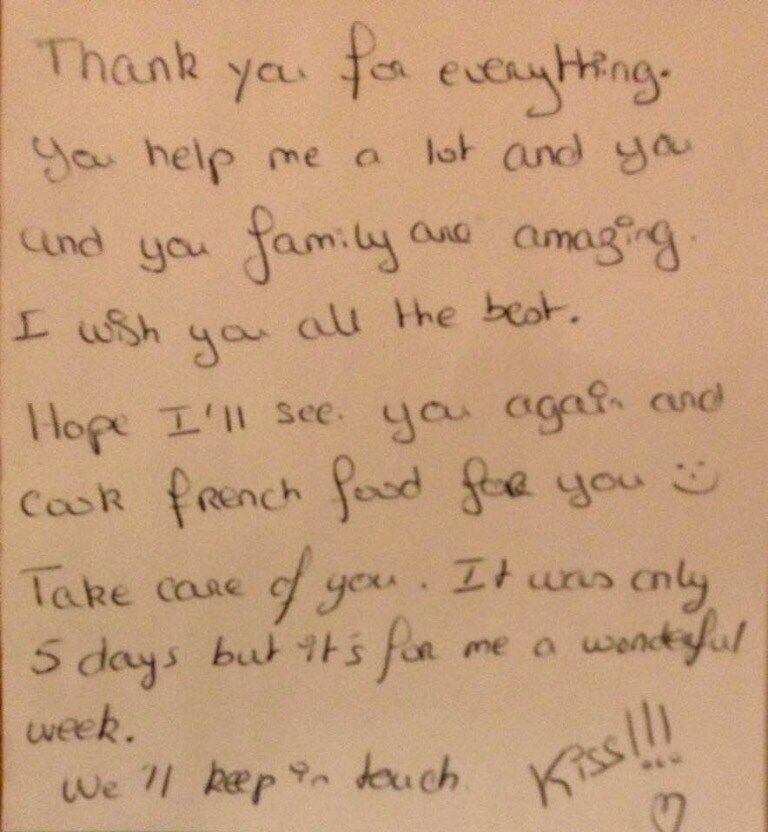 Thank you for everything.
You help me a lot and you
and you family are amazing.
I wish you all the best.
Hope I'll see you again and
cook french food for you :)
Take care of you. It was only
5 days but it's for me a wonderful
week.
We'll keep in touch.
Kiss!!!
♡